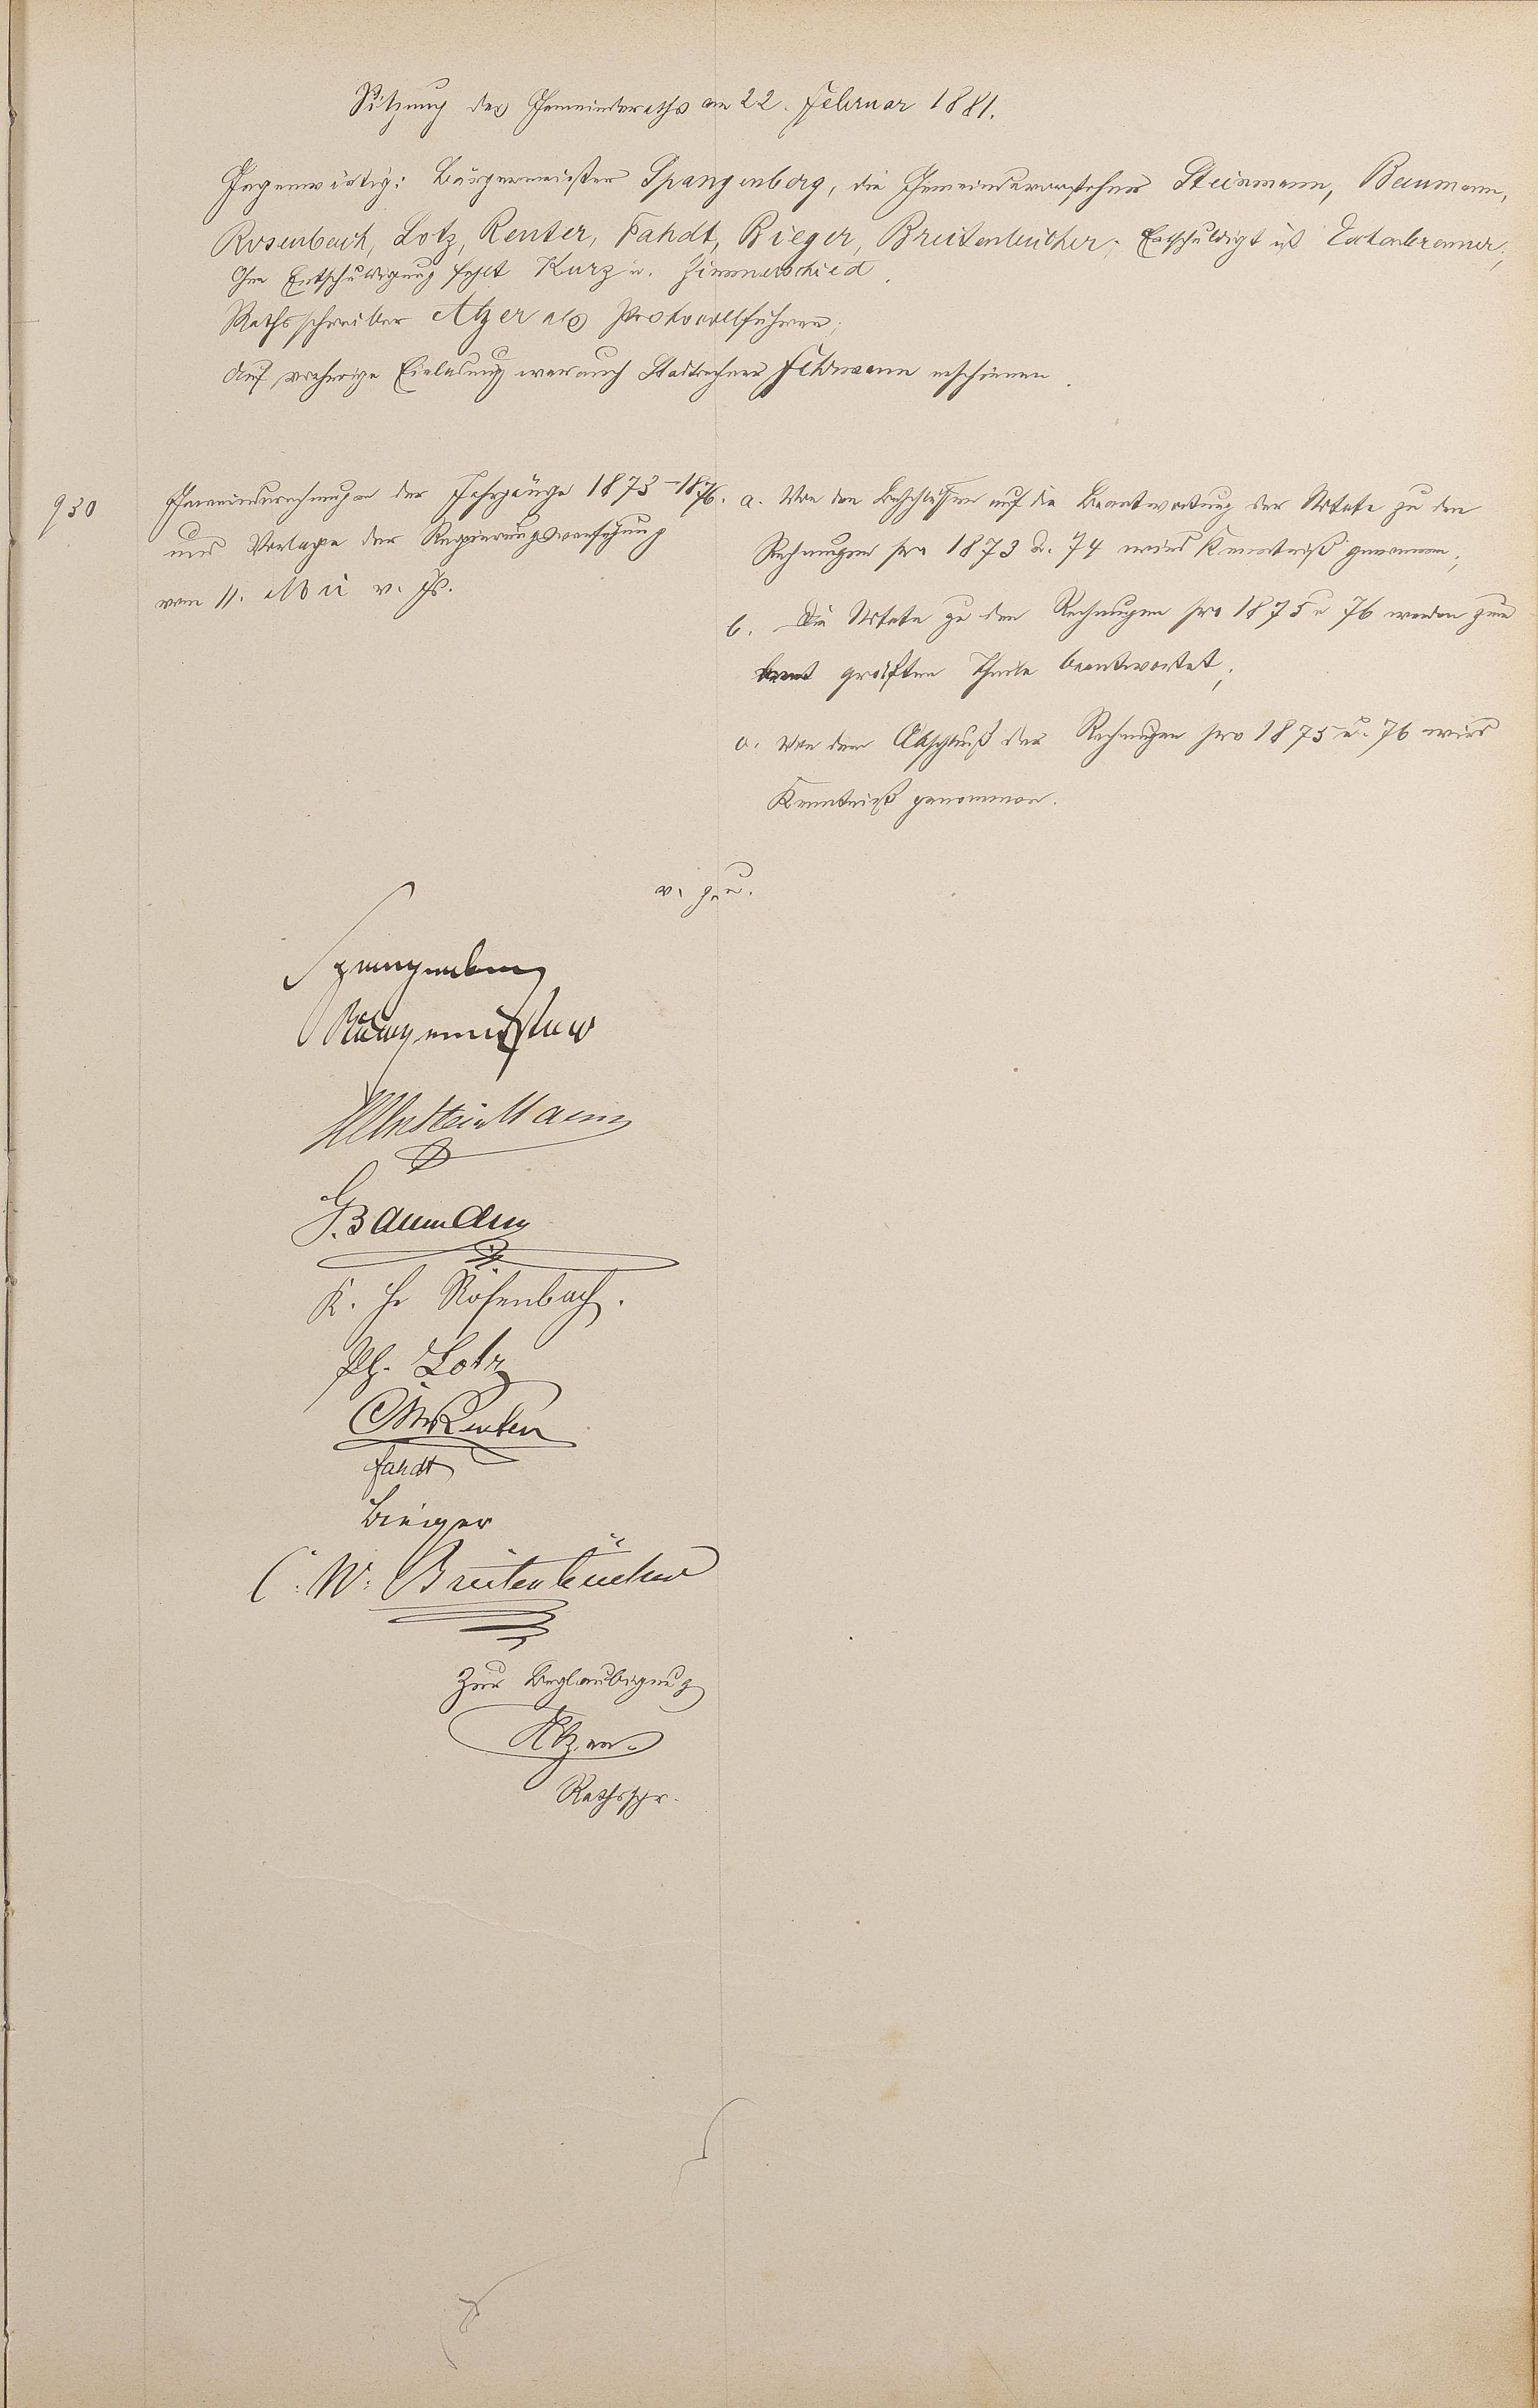 Sitzung des Gemeinderaths am 22. Februar 1881.
Gegenwärtig: Bürgermeister Spangenberg, die Gemeindevorsteher Steinmann, Baumann,
Rosenbach, Lotz, Reuter, Fahdt, Bieger, Breitenbücher; Entschuldigt ist
Ohne Entschuldigung fehlt Kurz u. Zimmerschied.
Rathsschreiber Atzer als Protocollführer;
Auf vorherige Einladung war auch Stadtrechner Fuhrmann erschienen.
930
Gemeinderechnungen der Jahrgänge 1873-1876.
und Vorlage der Regierungsverfügung
vom 11. Mai v. Js.
a. Von den Beschlüssen auf die Beantwortung der Notate zu den
Rechnungen pro 1873 u. 74 wird Kenntniß genommen;
b. Die Notate zu den Rechnungen pro 1875 u 76 werden zum
größten Theile beantwortet;
c. Von dem Abschluß der Rechnungen pro 1875 u. 76 wird
Kenntniß genommen.
v. g. u.
Spangenberg
Bürgermeister
Steinmann
G. Baumann
K. Hr Rosenbach.
Ph. Lotz
Chr Reuter
Fahdt
Bieger
C. W. Breitenbücher
Zur Beglaubigung
Atzer.
Rathsschr.